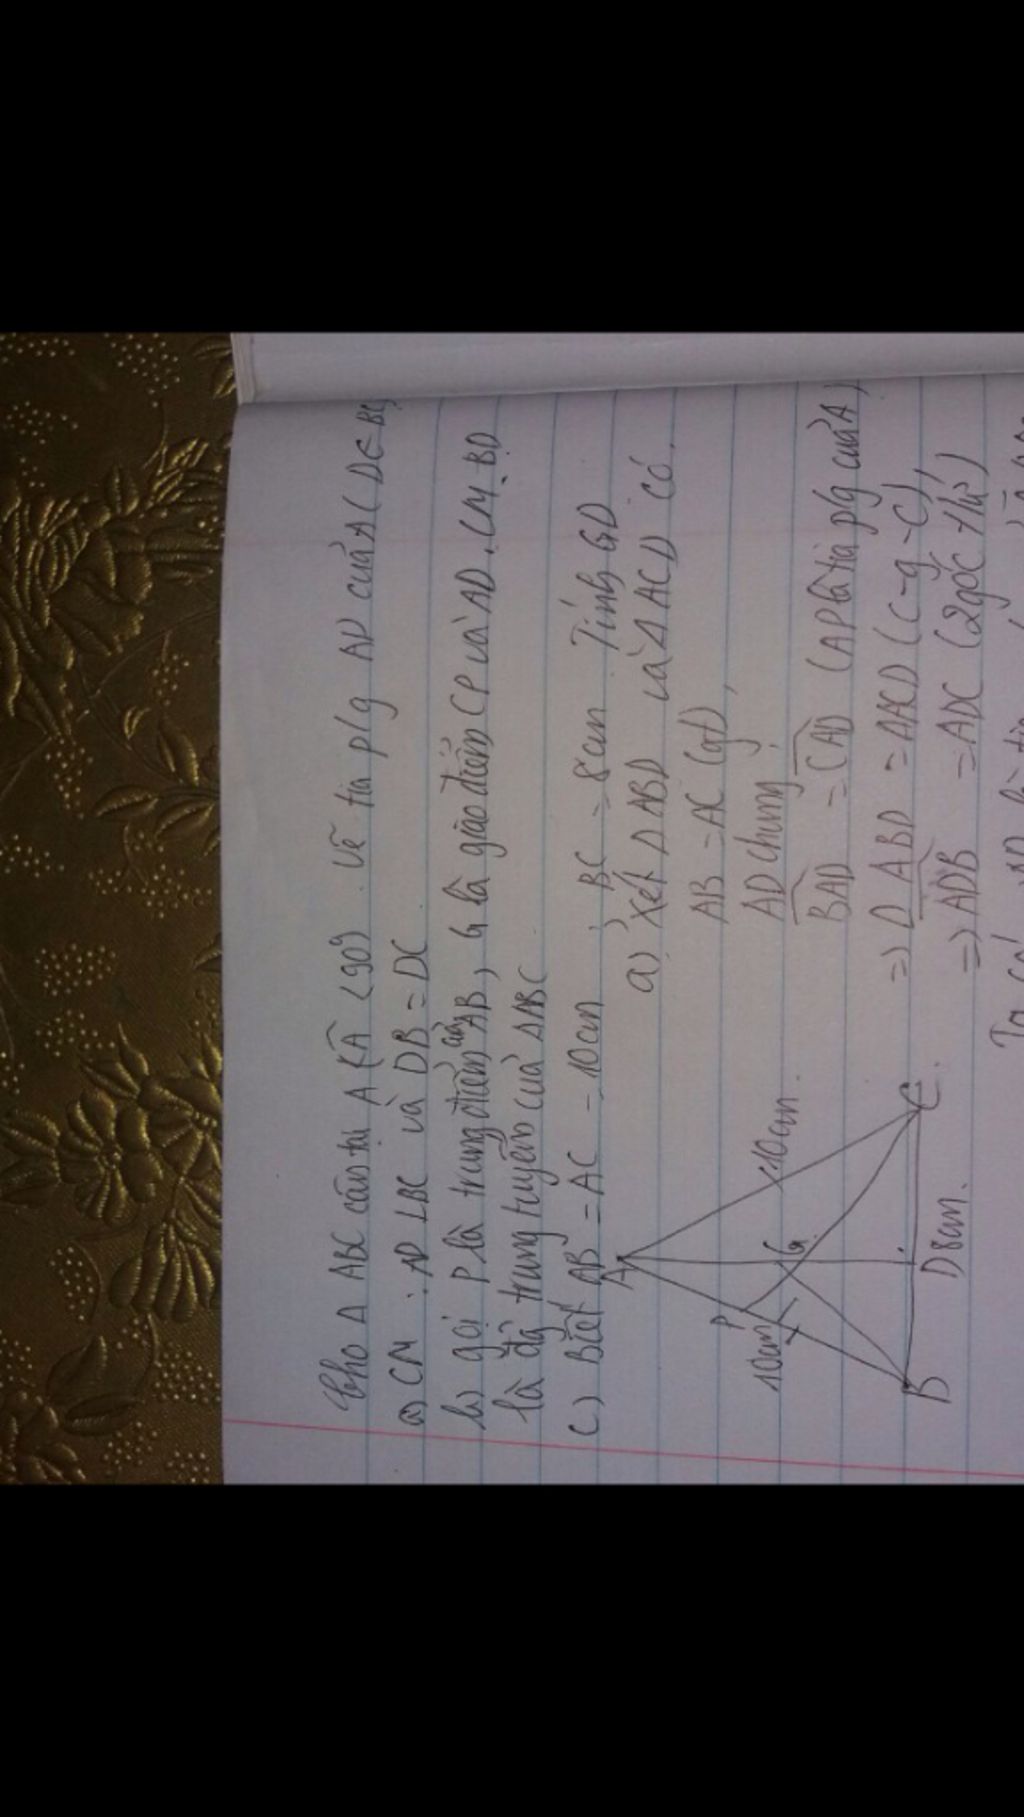 Cho Δ ABC cân tại A (Â < 90°). Vẽ tia p/g AD của A (D ∈ BC)
a) CM : AD ⊥ BC và DB = DC
b) gọi P là trung điểm của AB, G là giao điểm CP và AD. CM: BD
là đg trung tuyến của ΔABC
c) Biết AB = AC = 10cm, BC = 8cm Tính GD
a) Xét Δ ABD và Δ ACD có.
AB = AC (gt)
AD chung
BAD = CAD (AP là tia p/g của A)
=> Δ ABD = ΔACD (c-g-c)
=> ADB = ADC (2 góc
Ta có
A
P
10cm
G
10cm.
B
D 8cm.
C